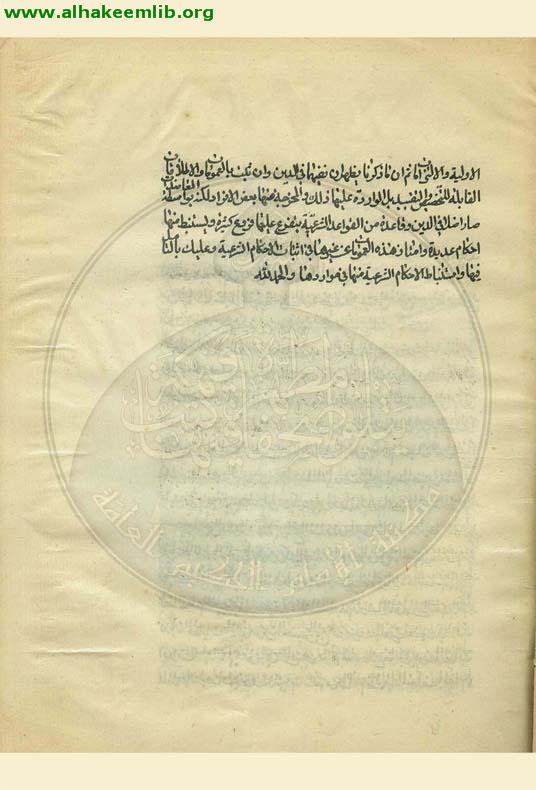 www.alhakeemlib.org
الاولية والا ثم ان ما ذكرنا يظهر ان نفيها في الدين وان ثبت بالعمومات والاطلاقات
القابلة للتخصيص والتقييد بل الواردة عليها ذلك والمخرجة منها بعض الافراد لكنه
صار اصلا في الدين وقاعدة من القواعد الشرعية يتفرع عليها فروع كثيرة ويستنبط منها
احكام عديدة وامتاز هذه العمومات عن غيرها في اثبات الاحكام الشرعية وعليك بالتأ
فيها واستنباط الاحكام الشرعية منها في مواردها والحمد لله
مكتبة الإمام الحكيم العامة